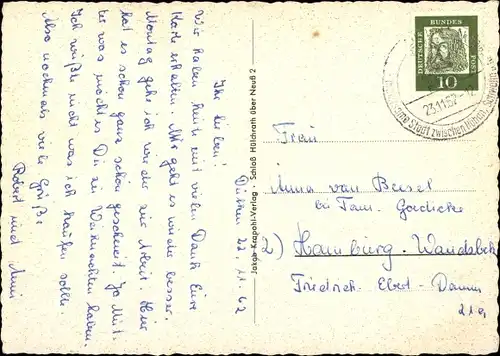 Dülken 22.11.62
Ihr Lieben!
Wir haben heute mit vielen Dank Eure
Karte erhalten. Mir geht es wieder besser.
Montag gehe ich wieder zur Arbeit. Hier
hat es schon ganz schön geschneit. Ja Mut-
ter was möchtest Du zu Weihnachten haben.
Ich wüßte nicht was ich kaufen sollte.
Also nochmals viele Grüße
Robert und Anni
Jaeger Krapohl-Verlag · Schloß Hülchrath über Neuß 2
DEUTSCHE BUNDES POST
10
23.11.62
Stadt zwischen
Frau
Anna van
bei Fam.
2) Hamburg-Wandsbek
Friedrich-Ebert-Damm
21a